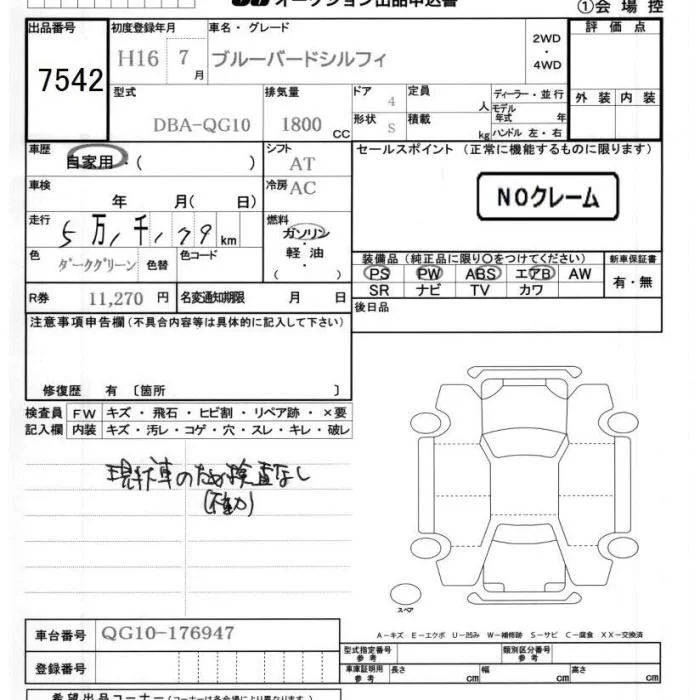 オークション出品申込書
①会場控
出品番号
7542
初度登録年月
H16 7月
車名・グレード
ブルーバードシルフィ
2WD・4WD
評価点
外装 内装
型式
DBA-QG10
排気量
1800 CC
ドア 4
形状 S
定員 人
積載 kg
ディーラー・並行
モデル年式 年
ハンドル 左・右
車歴
自家用・( )
シフト AT
車検 年 月( 日)
冷房 AC
走行
5万1千179 km
燃料
ガソリン・軽油
( )
色
ダークグリーン
色替
色コード
R券 11,270 円
名変通知期限 月 日
セールスポイント (正常に機能するものに限ります)
NOクレーム
装備品 (純正品に限り○をつけてください)
PS PW ABS エアB AW
SR ナビ TV カワ
新車保証書
有・無
後日品
注意事項申告欄(不具合内容等は具体的に記入して下さい)
修復歴 有 〔箇所 〕
検査員記入欄
FW キズ・飛石・ヒビ割・リペア跡・×要
内装 キズ・汚レ・コゲ・穴・スレ・キレ・破レ
現状車のため検査なし
(不動)
スペア
A-キズ E-エクボ U-凹み W-補修跡 S-サビ C-腐食 XX-交換済
車台番号 QG10-176947
登録番号
型式指定番号 参考
類別区分番号 参考
車庫証明用 参考
長さ cm 幅 cm 高さ cm
希望出品コーナー(コーナーは各会場により異なります)